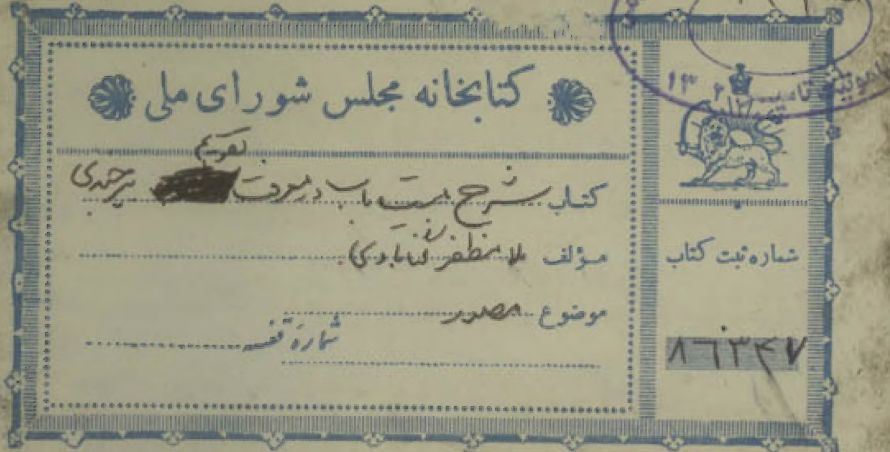 کتابخانه مجلس شورای ملی
تقویم
کتاب شرح بیست باب در معرفت بیرجندی
مؤلف ملا مظفر گنابادی
موضوع
شمارهٔ قفسه
شماره ثبت کتاب
۸۶۳۴۷
۱۳۰۲